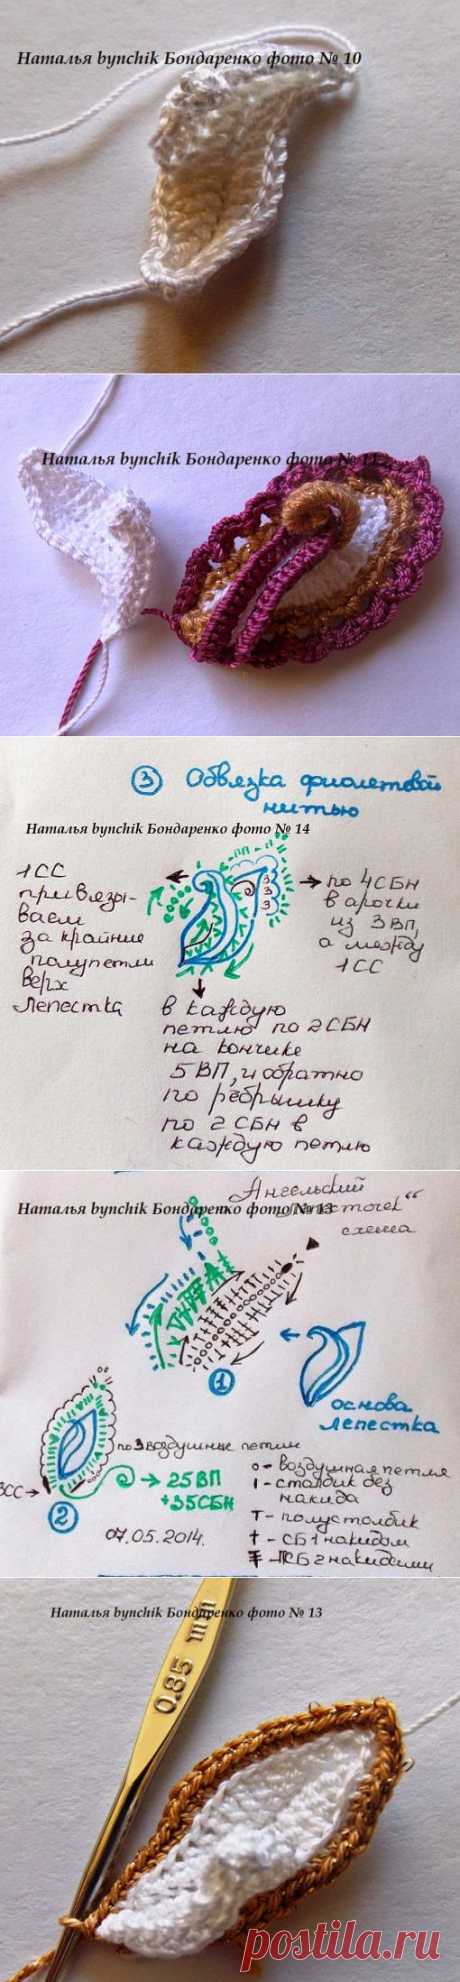 Наталья bynchik Бондаренко фото № 10
Наталья bynchik Бондаренко фото №
③ Обвязка фиолетовой
нитью
Наталья bynchik Бондаренко фото № 14
1СС
привязы-
ваем
за крайние
полупетли
верх
лепестка
по 4 СБН
в арочки
из 3 ВП,
а между
1СС
3
3
3
в каждую
петлю по 2 СБН
на кончике
5 ВП, и обратно
по рёбрышку
по 2 СБН в
каждую петлю
"Ангельский
лепесточек"
схема
Наталья bynchik Бондаренко фото № 13
①
основа
лепестка
по 3 воздушные петли
→ 25 ВП
+35СБН
②
07.05.2014.
о - воздушная петля
ı - столбик без
накида
т - полустолбик
† - СБ 1 накидом
- СБ 2 накидами
Наталья bynchik Бондаренко фото № 13
0.85 mm
postila.ru